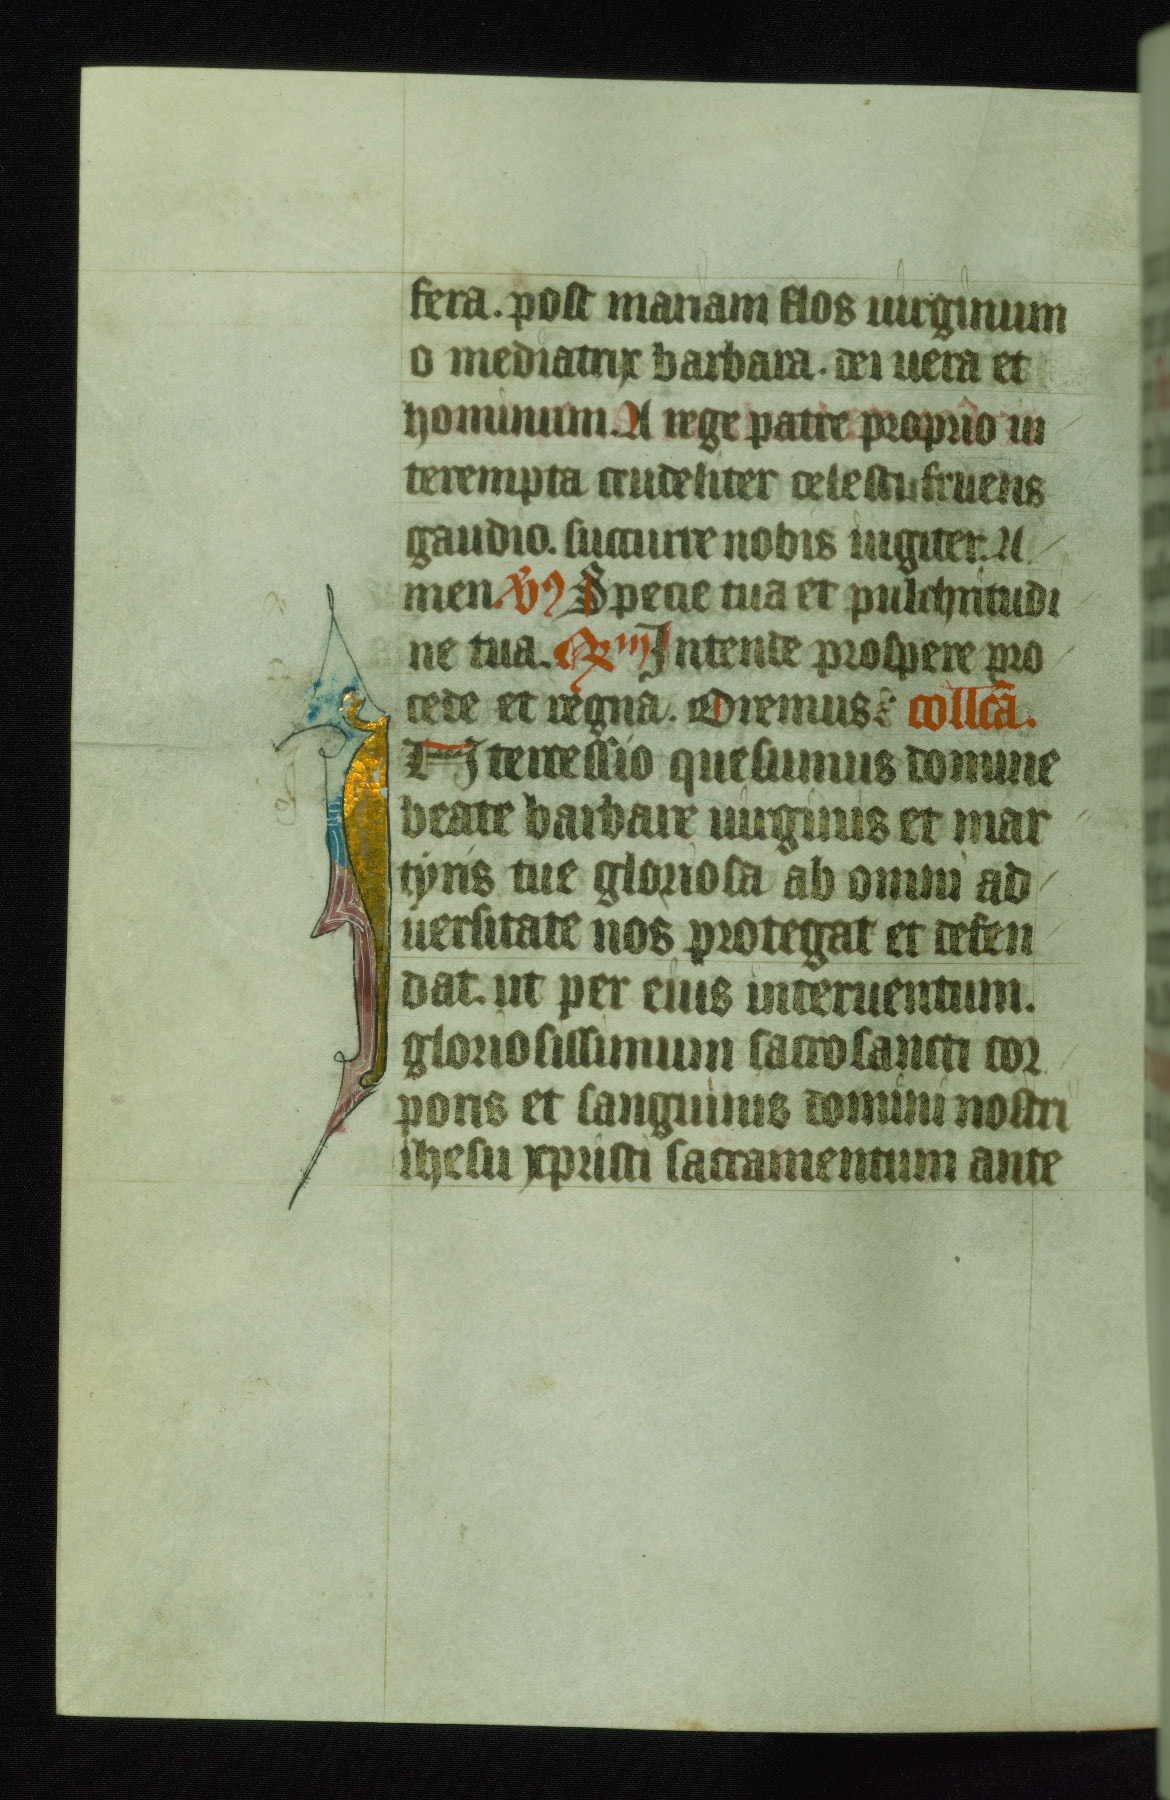 fera. post mariam flos uirginum
o mediatrix barbara. dei uera et
hominum. A rege patre proprio in
terempta crudeliter celesti fruens
gaudio. succurre nobis iugiter. A
men. Specie tua et pulchritudi
ne tua. Intende prospere pro
cede et regna. Oremus collcā.
Ntercessio quesumus domine
beate barbare uirginis et mar
tyris tue gloriosa ab omni ad
uersitate nos protegat et defen
dat. ut per eius interuentum.
gloriosissimum sacrosancti cor
poris et sanguinis domini nostri
ihesu xpristi sacramentum ante